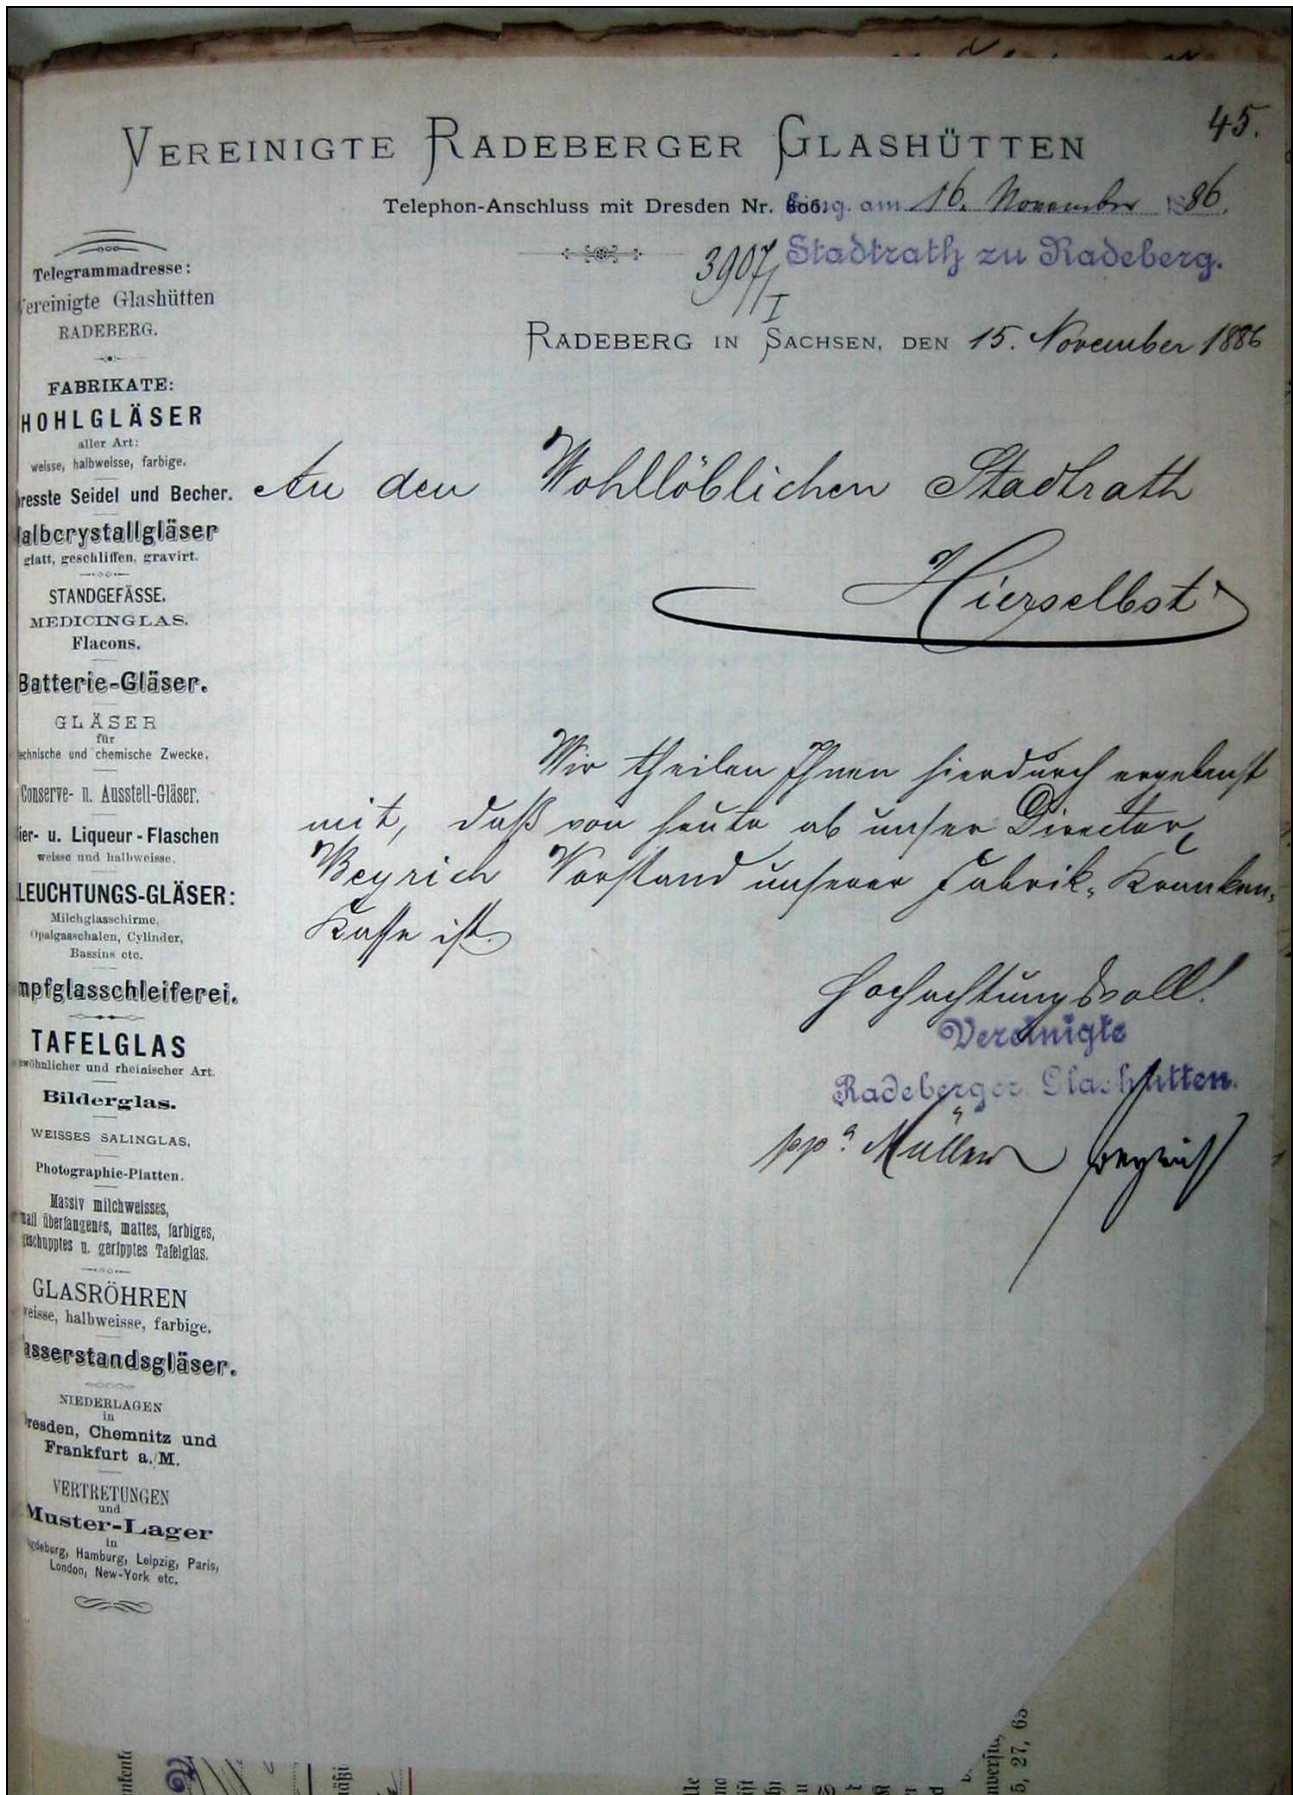 45.
VEREINIGTE RADEBERGER GLASHÜTTEN
Telephon-Anschluss mit Dresden Nr. 806.
Eing. am 16. November 1886.
Stadtrath zu Radeberg.
3907/I
RADEBERG IN SACHSEN, DEN 15. November 1886
Telegrammadresse:
Vereinigte Glashütten
RADEBERG.
FABRIKATE:
HOHLGLÄSER
aller Art:
weisse, halbweisse, farbige.
presste Seidel und Becher.
Halbcrystallgläser
glatt, geschliffen, gravirt.
STANDGEFÄSSE.
MEDICINGLAS.
Flacons.
Batterie-Gläser.
GLÄSER
für
technische und chemische Zwecke.
Conserve- u. Ausstell-Gläser.
Bier- u. Liqueur-Flaschen
weisse und halbweisse.
LEUCHTUNGS-GLÄSER:
Milchglasschirme,
Opalgasschalen, Cylinder,
Bassins etc.
mpfglasschleiferei.
TAFELGLAS
wöhnlicher und rheinischer Art.
Bilderglas.
WEISSES SALINGLAS.
Photographie-Platten.
Massiv milchweisses,
mail überfangenes, mattes, farbiges,
geschupptes u. geripptes Tafelglas.
GLASRÖHREN
weisse, halbweisse, farbige.
asserstandsgläser.
NIEDERLAGEN
in
Dresden, Chemnitz und
Frankfurt a. M.
VERTRETUNGEN
und
Muster-Lager
in
gdeburg, Hamburg, Leipzig, Paris,
London, New-York etc.
An den Wohllöblichen Stadtrath
Hierselbst
Wir theilen Ihnen hierdurch ergebenst
mit, daß von heute ab unser Director,
Beyrich Vorstand unserer Fabrik-Kranken-
Kasse ist.
Hochachtungsvoll!
Vereinigte
Radeberger Glashütten.
ppa Müller Beyrich